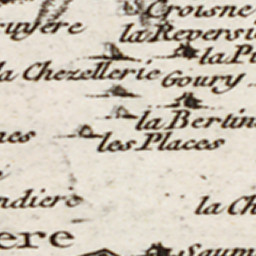 Croisne
uyere
la Reversi
la Pi
la Chezellerie
Goury
la Bertin
nes
les Places
ndiere
la Ch
ere
Saum